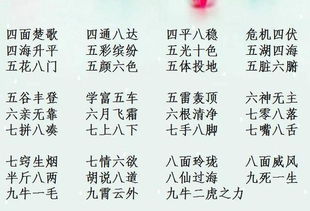 四面楚歌 四通八达 四平八稳 危机四伏
四海升平 五彩缤纷 五光十色 五湖四海
五花八门 五颜六色 五体投地 五脏六腑
五谷丰登 学富五车 五雷轰顶 六神无主
六亲无靠 六月飞霜 六根清净 七零八落
七拼八凑 七上八下 七手八脚 七嘴八舌
七窍生烟 七情六欲 八面玲珑 八面威风
半斤八两 胡说八道 八仙过海 九死一生
九牛一毛 九霄云外 九牛二虎之力